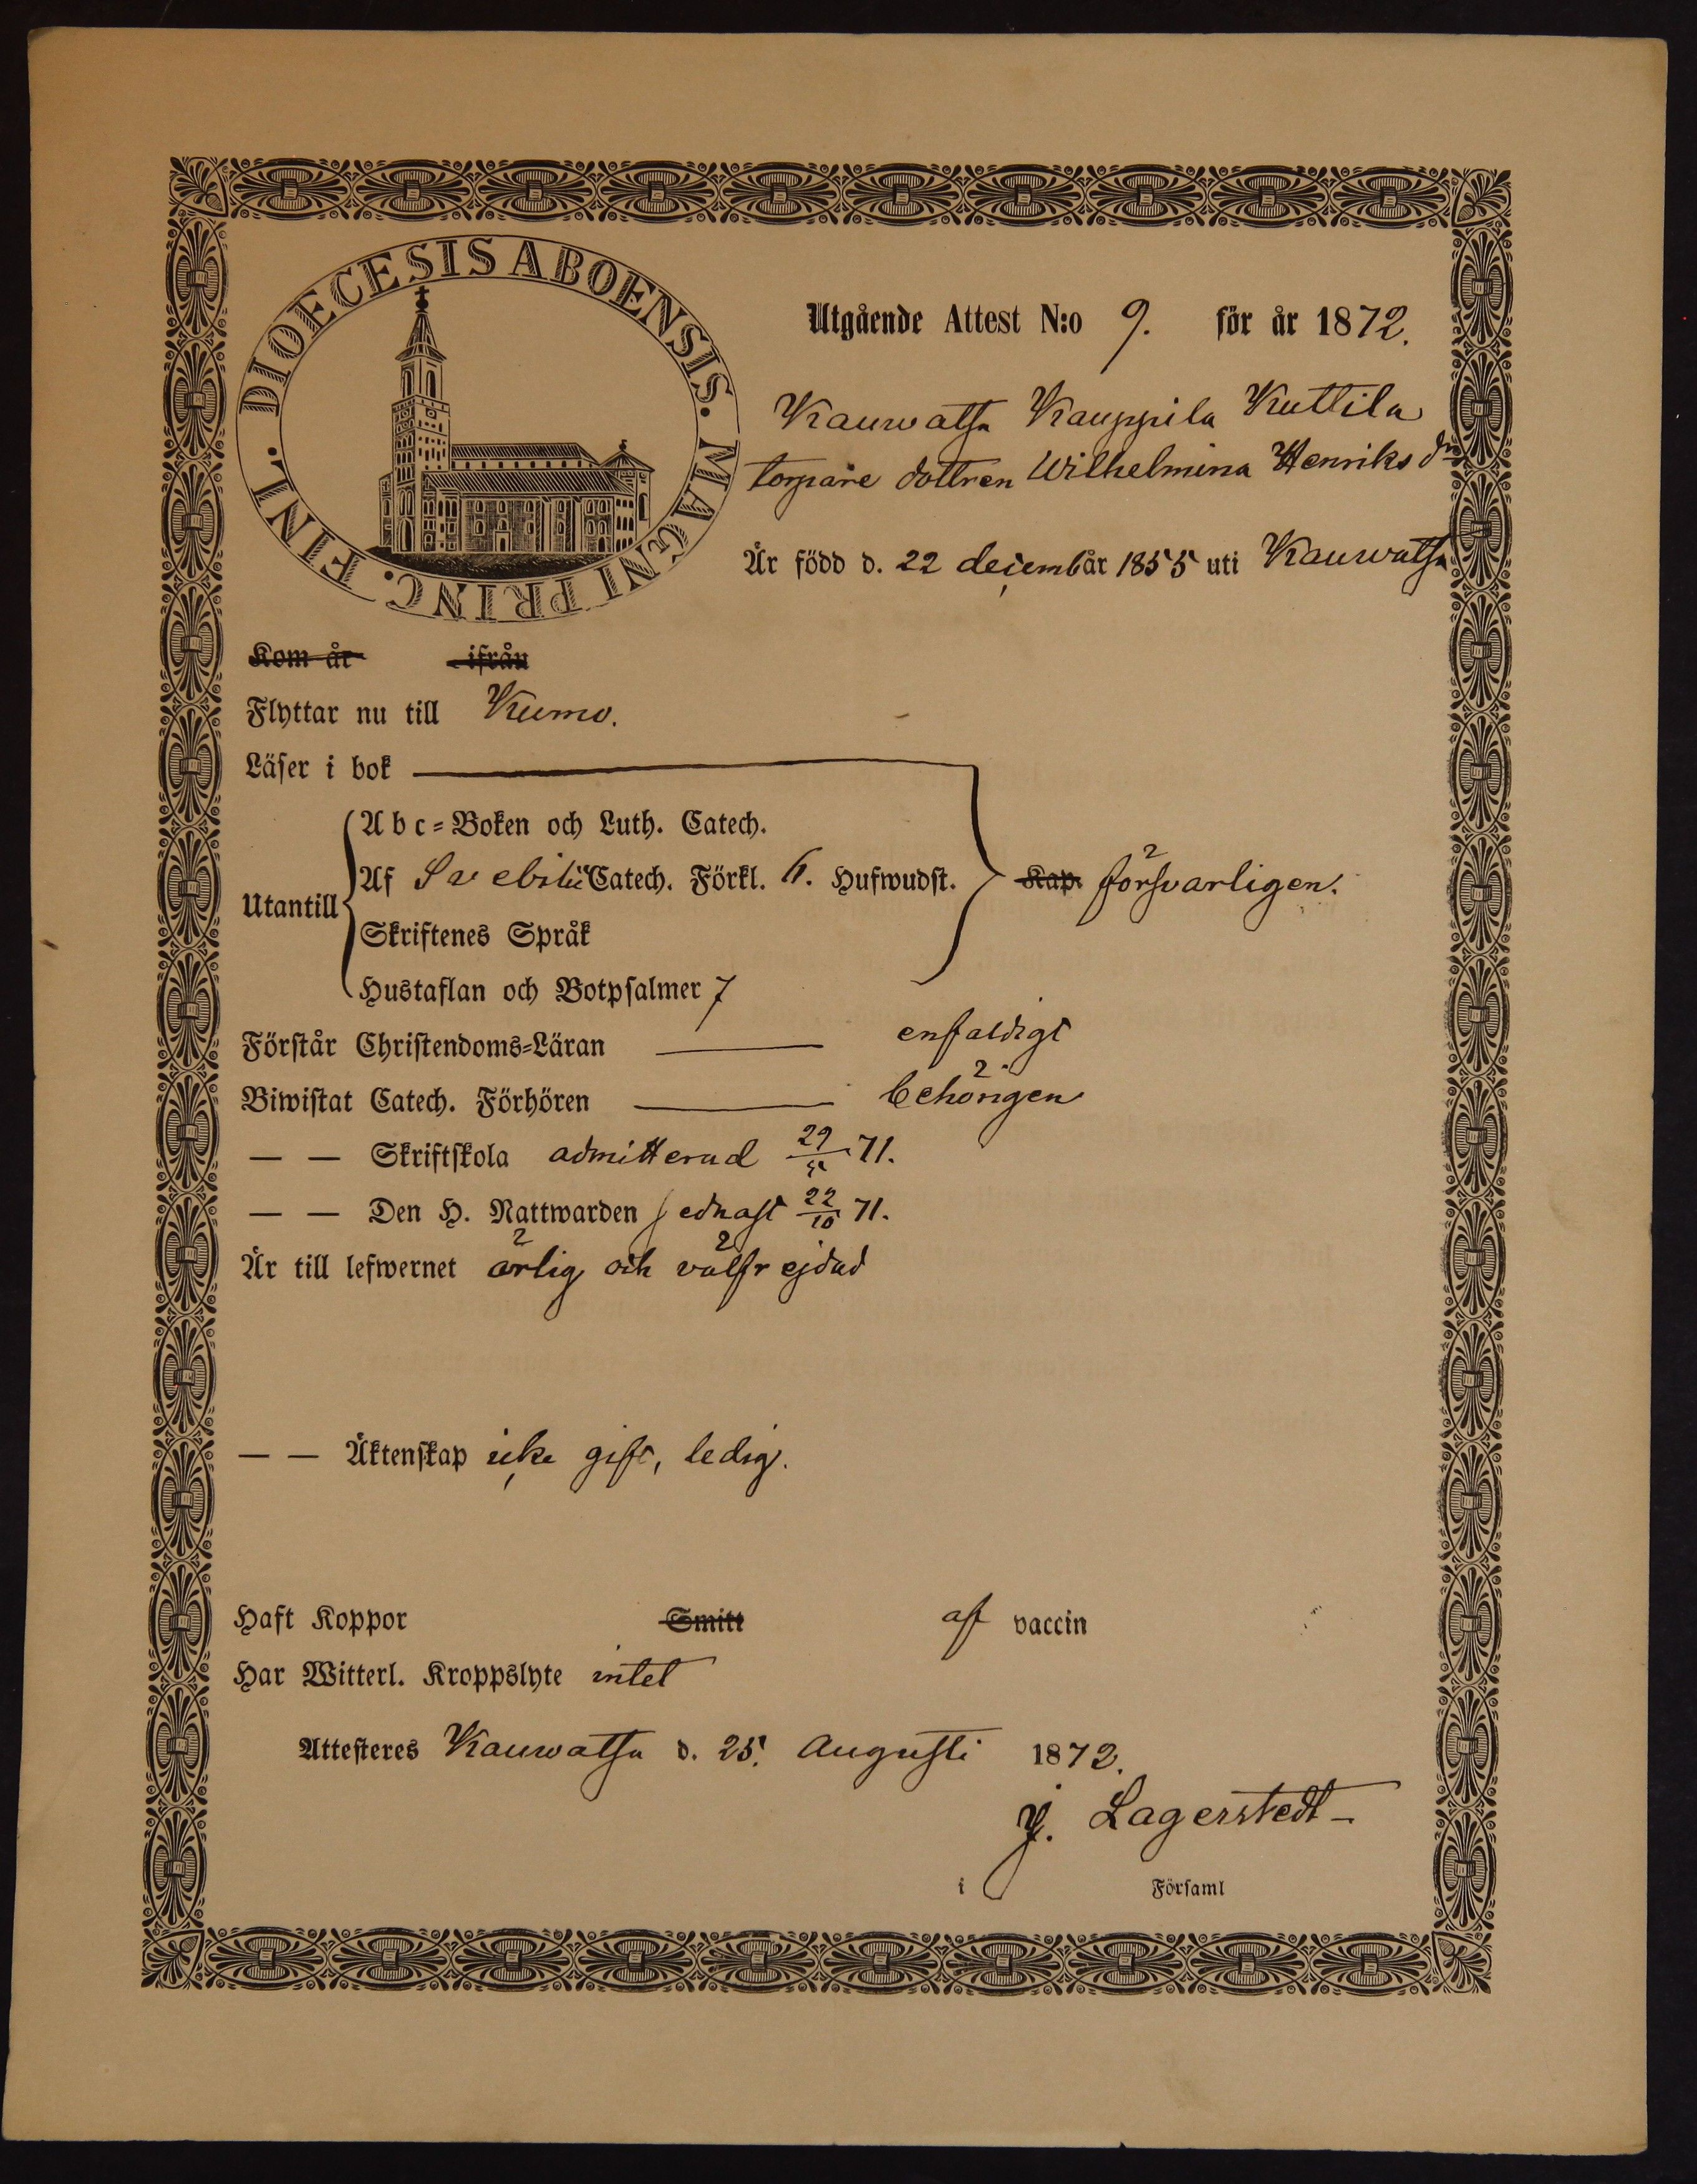 DIOECESIS ABOENSIS. MAGNI PRINC. FINL.
Utgående Attest N:o 9. för år 1872.
Kauwatsa Kauppila Kuttila
torpare dottren Wilhelmina Henriks dr
Är född d. 22 decembår 1855 uti Kauwatsa
Kom år ifrån
Flyttar nu till Kumo.
Läser i bok
Abc-Boken och Luth. Catech.
Af Svebilii Catech. Förkl. 6. Hufwudst. Kap. försvarligen.
Utantill
Skriftenes Språk
Hustaflan och Botpsalmer 7
Förstår Christendoms-Läran enfaldigt
Biwistat Catech. Förhören behörigen
— — Skriftskola admitterad 29/5 71.
— — Den H. Nattwarden sednast 22/10 71.
Är till lefwernet ärlig och välfrejdad
— — Äktenskap icke gift, ledig.
Haft Koppor Smitt af vaccin
Har Witterl. Kroppslyte intet
Attesteres Kauwatsa d. 25. Augusti 1872.
J. Lagerstedt
i Församl